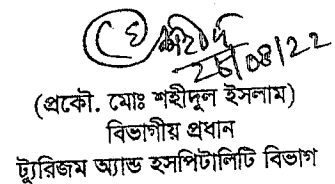 (প্রকৌ. মোঃ শহীদুল ইসলাম)
বিভাগীয় প্রধান
ট্যুরিজম অ্যান্ড হসপিটালিটি বিভাগ